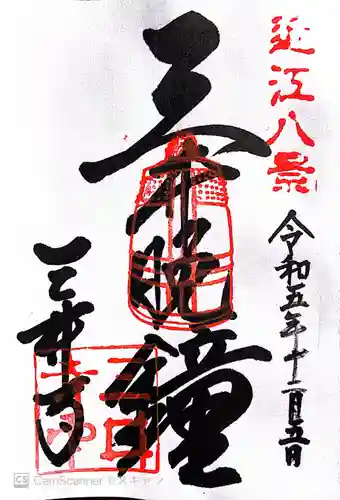 近江八景
令和五年十二月五日
三井晩鐘
三井寺
三井
寺印
CS CamScanner でスキャン